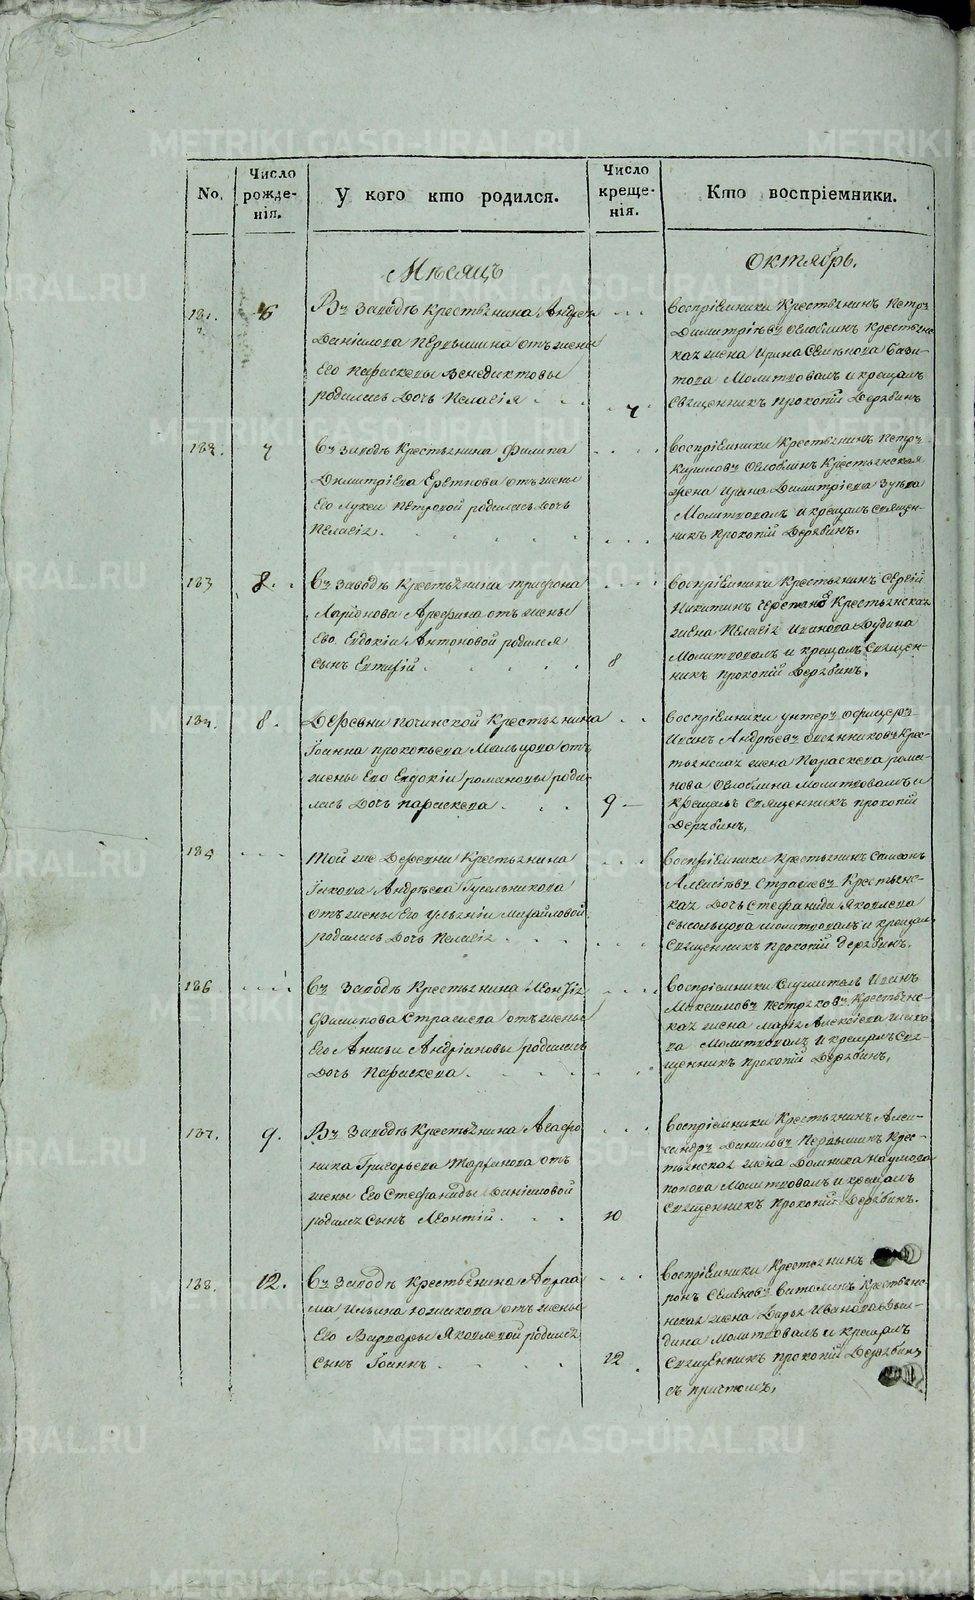 No.
Число рожде-
нія.
У кого кто родился.
Число креще-
нія.
Кто воспріемники.
Мѣсяцъ
Октябрь.
181.
6
Въ Заводѣ Крестьянина
Даніилова Первышина отъ жены
Его Параскевы Венедиктовы
родилась Дочь Пелагія
7
воспріемники Крестьянинъ Петръ
Димитріевъ Крестьянс-
кая жена Ирина Семенова
Молитвовалъ и крещалъ
Священникъ Прокопій Дерябинъ
182.
7
Въ заводѣ Крестьянина Филипа
Димитріева отъ жены
Его Лукеи Петровой родилась Дочь
Пелагія.
воспріемники Крестьянинъ Петръ
Крестьянская
жена Ирина Димитріева Зуева
Молитвовалъ и крещалъ священ-
никъ Прокопій Дерябинъ.
183
8.
Въ заводѣ Крестьянина Трифона
Ларіонова Арефина отъ жены
Его Евдокіи Антоновой родился
сынъ
8
воспріемники Крестьянинъ Сергій
Никитинъ Крестьянская
жена Пелагія Иванова
Молитвовалъ и крещалъ Священ-
никъ Прокопій Дерябинъ.
184.
8.
Деревни Починской Крестьянина
Іоанна Прокопьева Мальцова отъ
жены Его Евдокіи Романовы роди-
лась Дочь Параскева
9
воспріемники унтеръ офицеръ
Иванъ Андреевъ Крес-
тьянская жена Параскева Рома-
нова молитвовалъ и
крещалъ Священникъ Прокопій
Дерябинъ,
185
Той же Деревни Крестьянина
Андреева Гусельникова
отъ жены Его Ульяніи Михайловой
родилась Дочь Пелагія
воспріемники Крестьянинъ Самсонъ
Алексіевъ Стражевъ Крестьянс-
кая Дочь Стефанида Яковлева
молитвовалъ и крещалъ
Священникъ Прокопій Дерябинъ.
186
Въ Заводѣ Крестьянина
Филипова Стражева отъ жены
Его Анисьи Андріановы родилась
Дочь Параскева.
воспріемники Служитель Иванъ
Максимовъ Пестряковъ Крестьянс-
кая жена Марія Алексіева
Молитвовалъ и крещалъ Свя-
щенникъ Прокопій Дерябинъ,
187.
9.
Въ Заводѣ Крестьянина Агафо
ника Григорьева отъ
жены Его Стефаниды Даніиловой
родился Сынъ Леонтій
10
воспріемники Крестьянинъ Алек-
сандръ Даниловъ Первышинъ Крес-
тьянская жена Домника Наумова
Попова Молитвовалъ и крещалъ
Священникъ Прокопій Дерябинъ.
188.
12.
Въ Заводѣ Крестьянина Авраа
ма Ильина отъ жены
Его Варвары Яковлевой родился
сынъ Іоаннъ
12
воспріемники Крестьянинъ
Семеновъ Крестьянс-
кая жена Дарья Иванова
Молитвовалъ и крещалъ
Священникъ Прокопій Дерябинъ
съ причтомъ,
METRIKI.GASO-URAL.RU